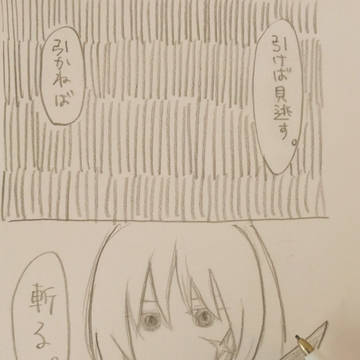 引けば見逃す。
引かねば
斬る。